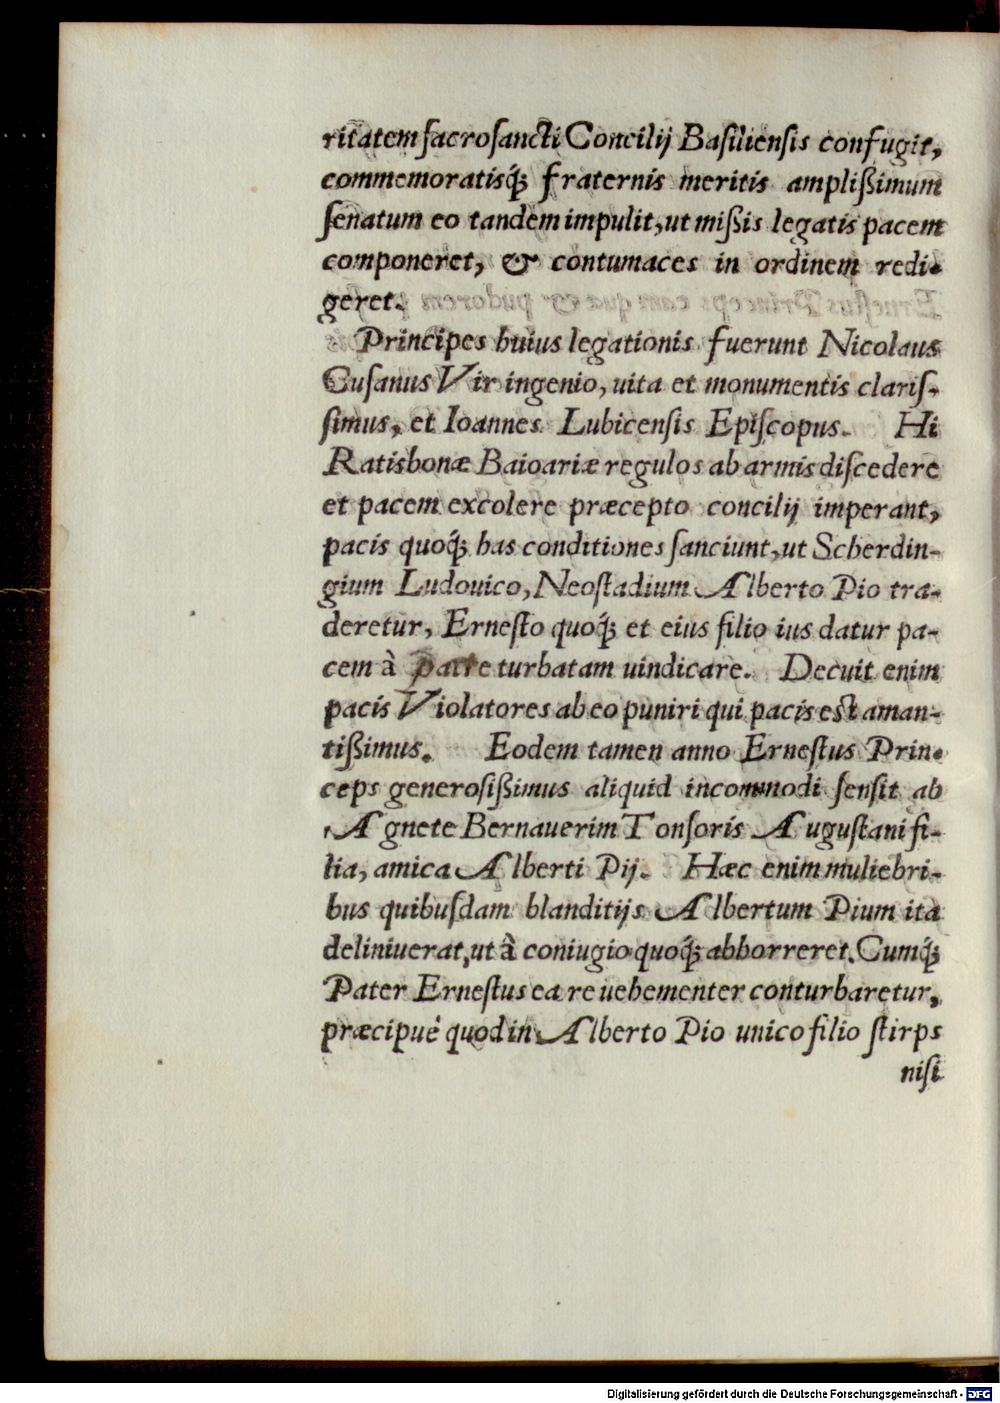 ritatem ſacroſancti Concilij Baſilienſis confugit,
commemoratisq́; fraternis meritis amplißimum
ſenatum eo tandem impulit, ut mißis legatis pacem
componeret, & contumaces in ordinem redi-
geret.
Principes huius legationis fuerunt Nicolaus
Cuſanus Vir ingenio, uita et monumentis clariſ-
ſimus, et Ioannes Lubicenſis Epiſcopus. Hi
Ratisbonæ Baioariæ regulos ab armis diſcedere
et pacem excolere præcepto concilij imperant,
pacis quoq́; has conditiones ſanciunt, ut Scherdin-
gium Ludouico, Neoſtadium Alberto Pio tra-
deretur, Erneſto quoq́; et eius filio ius datur pa-
cem à parte turbatam uindicare. Decuit enim
pacis Violatores ab eo puniri qui pacis eſt aman-
tißimus. Eodem tamen anno Erneſtus Prin-
ceps generoſißimus aliquid incommodi ſenſit ab
Agnete Bernauerim Tonſoris Auguſtani fi-
lia, amica Alberti Pij. Hæc enim muliebri-
bus quibuſdam blanditijs Albertum Pium ita
deliniuerat, ut à coniugio quoq́; abhorreret. Cumq́;
Pater Erneſtus ea re uehementer conturbaretur,
præcipuè quod in Alberto Pio unico filio ſtirps
niſi
Digitalisierung gefördert durch die Deutsche Forschungsgemeinschaft - DFG